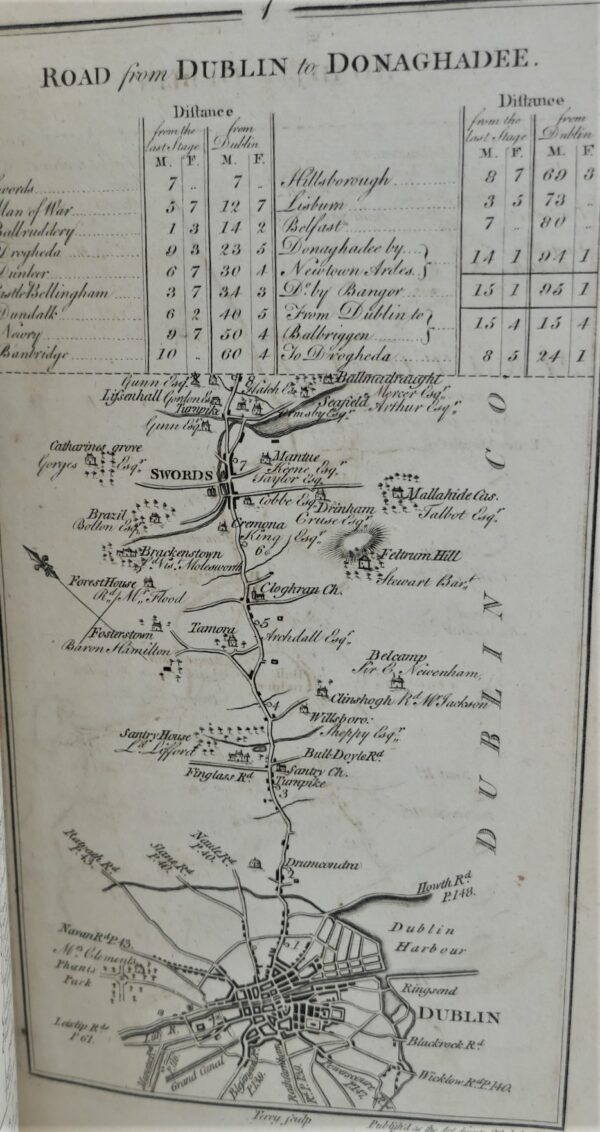 ROAD from DUBLIN to DONAGHADEE.
Distance
from the last Stage
from Dublin
M. F. M. F.
words 7 .. 7 ..
Man of War 5 7 12 7
Balbruddery 1 3 14 2
Drogheda 9 3 23 5
Dunleer 6 7 30 4
astle Bellingham 3 7 34 3
Dundalk 6 2 40 5
Newry 9 7 50 4
Banbridge 10 .. 60 4
Distance
from the last Stage
from Dublin
M. F. M. F.
Hillsborough 8 7 69 3
Lisburn 3 5 73 ..
Belfast 7 .. 80 ..
Donaghadee by
Newtown Ardes. 14 1 94 1
Do. by Bangor 15 1 95 1
From Dublin to
Balbriggen 15 4 15 4
To Drogheda 8 5 24 1
Gunn Esqr.
Hatch Esqr.
Ballmadraught
Mercer Esqr.
Lissenhall Gordon Esqr.
Turnpike
Seafield
Arthur Esqr.
Ormsby Esqr.
Gunn Esqr.
Catharines grove
Gorges Esqr.
SWORDS
7
Mantue
Keene Esqr.
Taylor Esqr.
Cobbe Esqr.
Drinham
Cruse Esqr.
Mallahide Cas.
Talbot Esqr.
Brazil
Bolton Esqr.
Cremona
King Esqr.
6
Brackenstown
Vis. Molesworth
Feltrum Hill
Stewart Bart.
Forest House
Rd. Mr. Flood
Cloghran Ch.
5
Fosterstown
Baron Hamilton
Tamora
Archdall Esqr.
Belcamp
Sir E. Newenham
Clinshogh Rd. Mr. Jackson
4
Willsboro:
Sheppy Esqr.
Santry House
Ld. Lifford
Bull-Doyle Rd.
Finglass Rd.
Santry Ch.
Turnpike
3
Drumcondra
2
Ratoath Rd. P.43.
Slane Rd. P.40.
Naule Rd. P.40.
Howth Rd. P.148.
Navan Rd. P.43.
Mr. Clements
Phœnix Park
1
Dublin Harbour
Ringsend
DUBLIN
Leislip Rd. P.61.
Liffy R.
Grand Canal
Blackrock Rd.
Wicklow Rd. P.140.
DUBLIN CO
Terry sculp
Publish'd as the Act directs